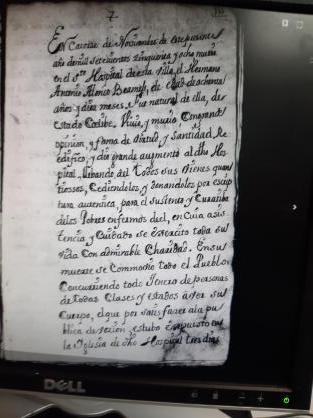 7
En Catorze de Noviembre de este presente
año de mill setecientos zinquenta y ocho murio
en el Sto. Hospital de esta Villa, el Hermano
Antonio Alonso, de edad de ochenta
años y diez meses. Fue natural de ella, de
estado Celibe. Vivio, y murio, con grande
opinion, y fama de Virtud, y Santidad. Re
edifico, y dio grande augmento al dho Hos
pital, dexando del todos sus Vienes quan
tiossos, Cediendolos y donandolos por escrip
tura autentica, para el sustento y Curacion
de los Pobres enfermos del, en Cuia asis
tencia y Cuidado se exercito toda su
vida Con admirable Charidad. En su
muerte se Commovio todo el Pueblo
Concurriendo todo Jenero de personas
de todas Clases y estados à ver su
Cuerpo, el que por satisfacer a la pu
blica devozion, estubo expuesto en
la Iglesia de dho Hospital tres dias
DELL